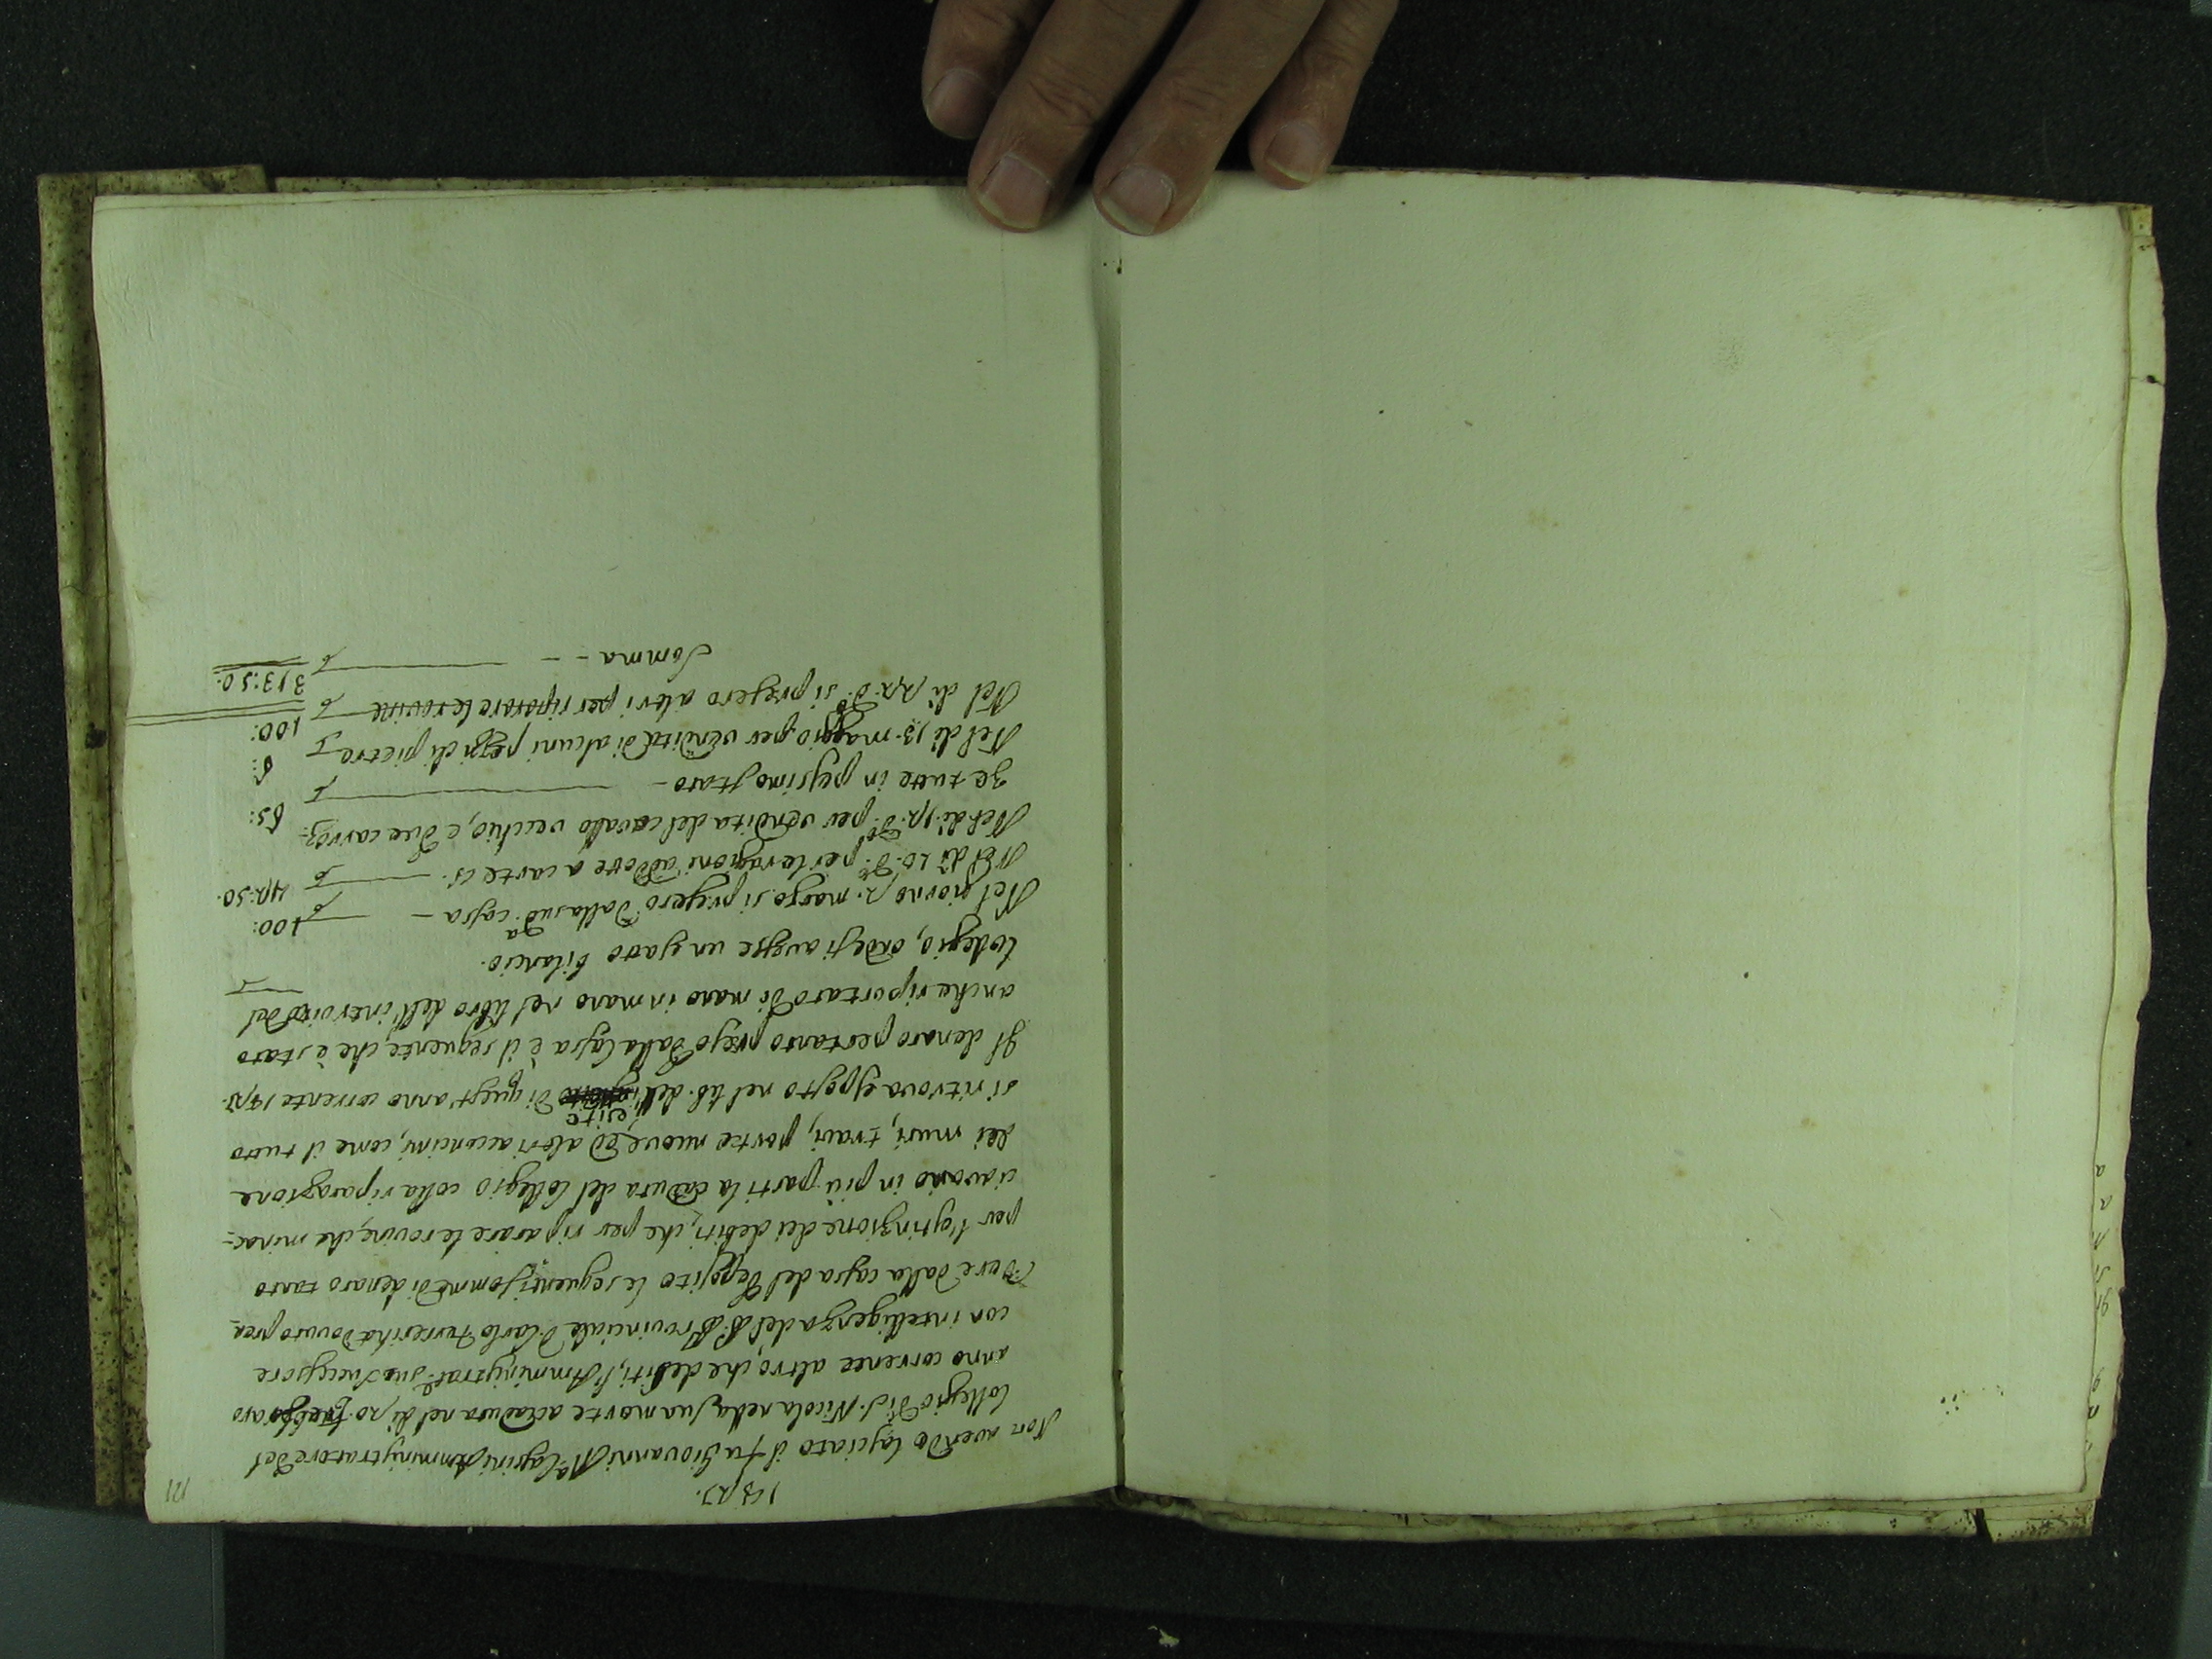 171
Non avendo lasciato il fu Giovanni Amministratore del
Collegio di S. Nicola nella sua morte accaduta nel di 20.
anno corrente altro, che debiti, l'Amministrat.e suo successore
con intelligenza del P. Provinciale D. Carlo ha dovuto pren-
dere dalla cassa del Deposito le seguenti somme di denaro tanto
per l'estinzione dei debiti, che per riparare le rovine, che minac-
ciavano in più parti la caduta del Collegio colla riparazione
dei muri, travi, porte nuove ed altri acconcimi, come il tutto
si ritrova esposto nel lib. dell'esito di quest'anno corrente
Il denaro pertanto preso dalla Cassa è il seguente, che è stato
anche riportato di mano in mano nel libro dell'introito del
Collegio, onde si avesse un esatto bilancio.
Nel giorno 2. marzo si presero dalla sud.a cassa - 100:
Nel di 20. d.o per le ragioni addotte a carte 42:50.
Nel di 12. d.o per vendita del cavallo vecchio, e due carroz-
ze tutte in pessimo stato - 65:
Nel di 13. maggio per vendita di alcuni pezzi di pietre 6:
Nel di 22. d.o si presero altri per riparare le rovine 100:
Somma - - 313:50.